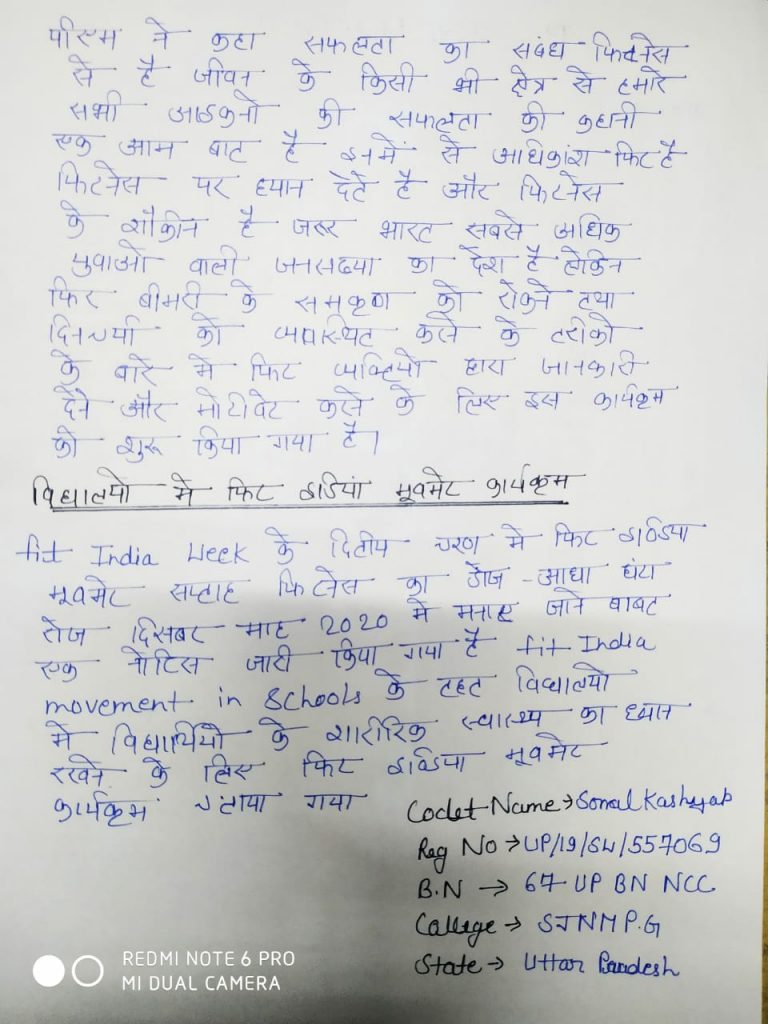 पीएम ने कहा सफलता का संबंध फिटनेस
से है जीवन के किसी भी क्षेत्र से हमारे
सभी आइकनो की सफलता की कहानी
एक आम बात है इनमें से अधिकांश फिट है
फिटनेस पर ध्यान देते है और फिटनेस
के शौकीन है जरूर भारत सबसे अधिक
युवाओ वाली जनसख्या का देश है लेकिन
फिर बीमरी के समकृण को रोकने तथा
दिनचर्या को व्यवस्थित करने के तरीको
के बारे मे फिट व्यक्तियो द्वारा जानकारी
देने और मोटीवेट करने के लिए इस कार्यक्रम
को शुरू किया गया है।
विद्यालयो मे फिट इडिया मूवमेट कार्यक्रम
fit India Week के दितीय चरण मे फिट इण्डिया
मूवमेट सप्ताह फिटनेस का डोज - आधा घंटा
रोज दिसबर माह 2020 मे मनाए जाने बाबत
एक नोटिस जारी किया गया है fit India
movement in Schools के तहत विद्यालयो
मे विद्यार्थियो के शारीरिक स्वास्थ्य का ध्यान
रखने के लिए फिट इण्डिया मूवमेट
कार्यक्रम चलाया गया
Codet Name → Sonal Kashyap
Reg No → UP/19/SW/557069
B.N → 67 UP BN NCC
College → SJNM P.G
State → Uttar Pradesh
REDMI NOTE 6 PRO
MI DUAL CAMERA